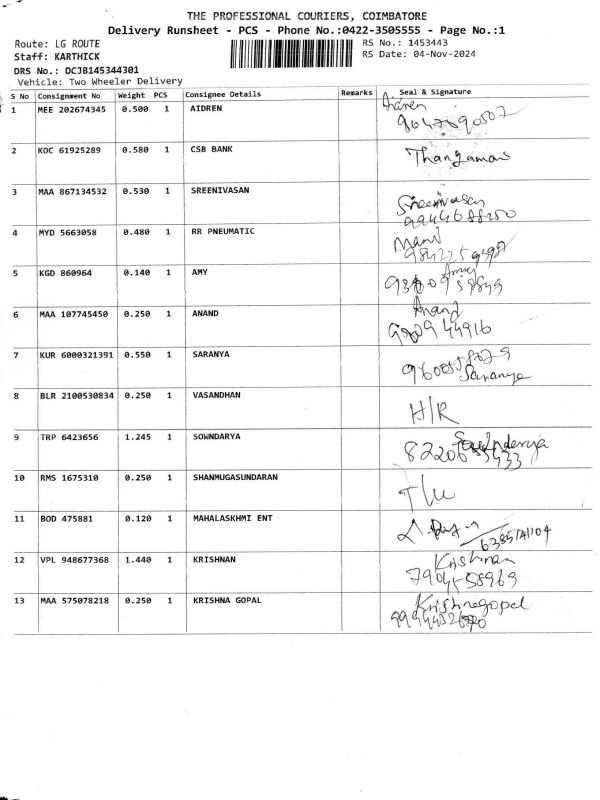 THE PROFESSIONAL COURIERS, COIMBATORE
Delivery Runsheet - PCS - Phone No.:0422-3505555 - Page No.:1
Route: LG ROUTE
RS No.: 1453443
Staff: KARTHICK
RS Date: 04-Nov-2024
DRS No.: DCJB145344301
Vehicle: Two Wheeler Delivery
S No Consignment No Weight PCS Consignee Details Remarks Seal & Signature
1 MEE 202674345 0.500 1 AIDREN Aidren
2 KOC 61925289 0.580 1 CSB BANK
3 MAA 867134532 0.530 1 SREENIVASAN Sreenivasan
9944688250
4 MYD 5663058 0.480 1 RR PNEUMATIC Mani
5 KGD 860964 0.140 1 AMY Amy
6 MAA 107745450 0.250 1 ANAND Anand
7 KUR 6000321391 0.550 1 SARANYA
Saranya
8 BLR 2100530834 0.250 1 VASANDHAN H/R
9 TRP 6423656 1.245 1 SOWNDARYA
10 RMS 1675310 0.250 1 SHANMUGASUNDARAN
11 BOD 475881 0.120 1 MAHALASKHMI ENT
12 VPL 948677368 1.440 1 KRISHNAN Krishnan
7904558969
13 MAA 575078218 0.250 1 KRISHNA GOPAL Krishnagopal